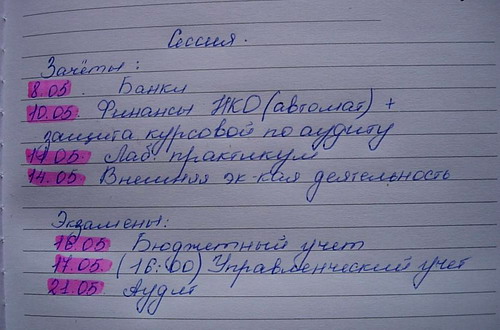 Сессия.
Зачёты:
8.05. Банки
10.05. Финансы НКО (автомат) +
защита курсовой по аудиту
11.05. Лаб. практикум
14.05 Внешняя эк-кая деятельность
Экзамены:
16.05 Бюджетный учет
17.05. (16:00) Управленческий учет
21.05 Аудит